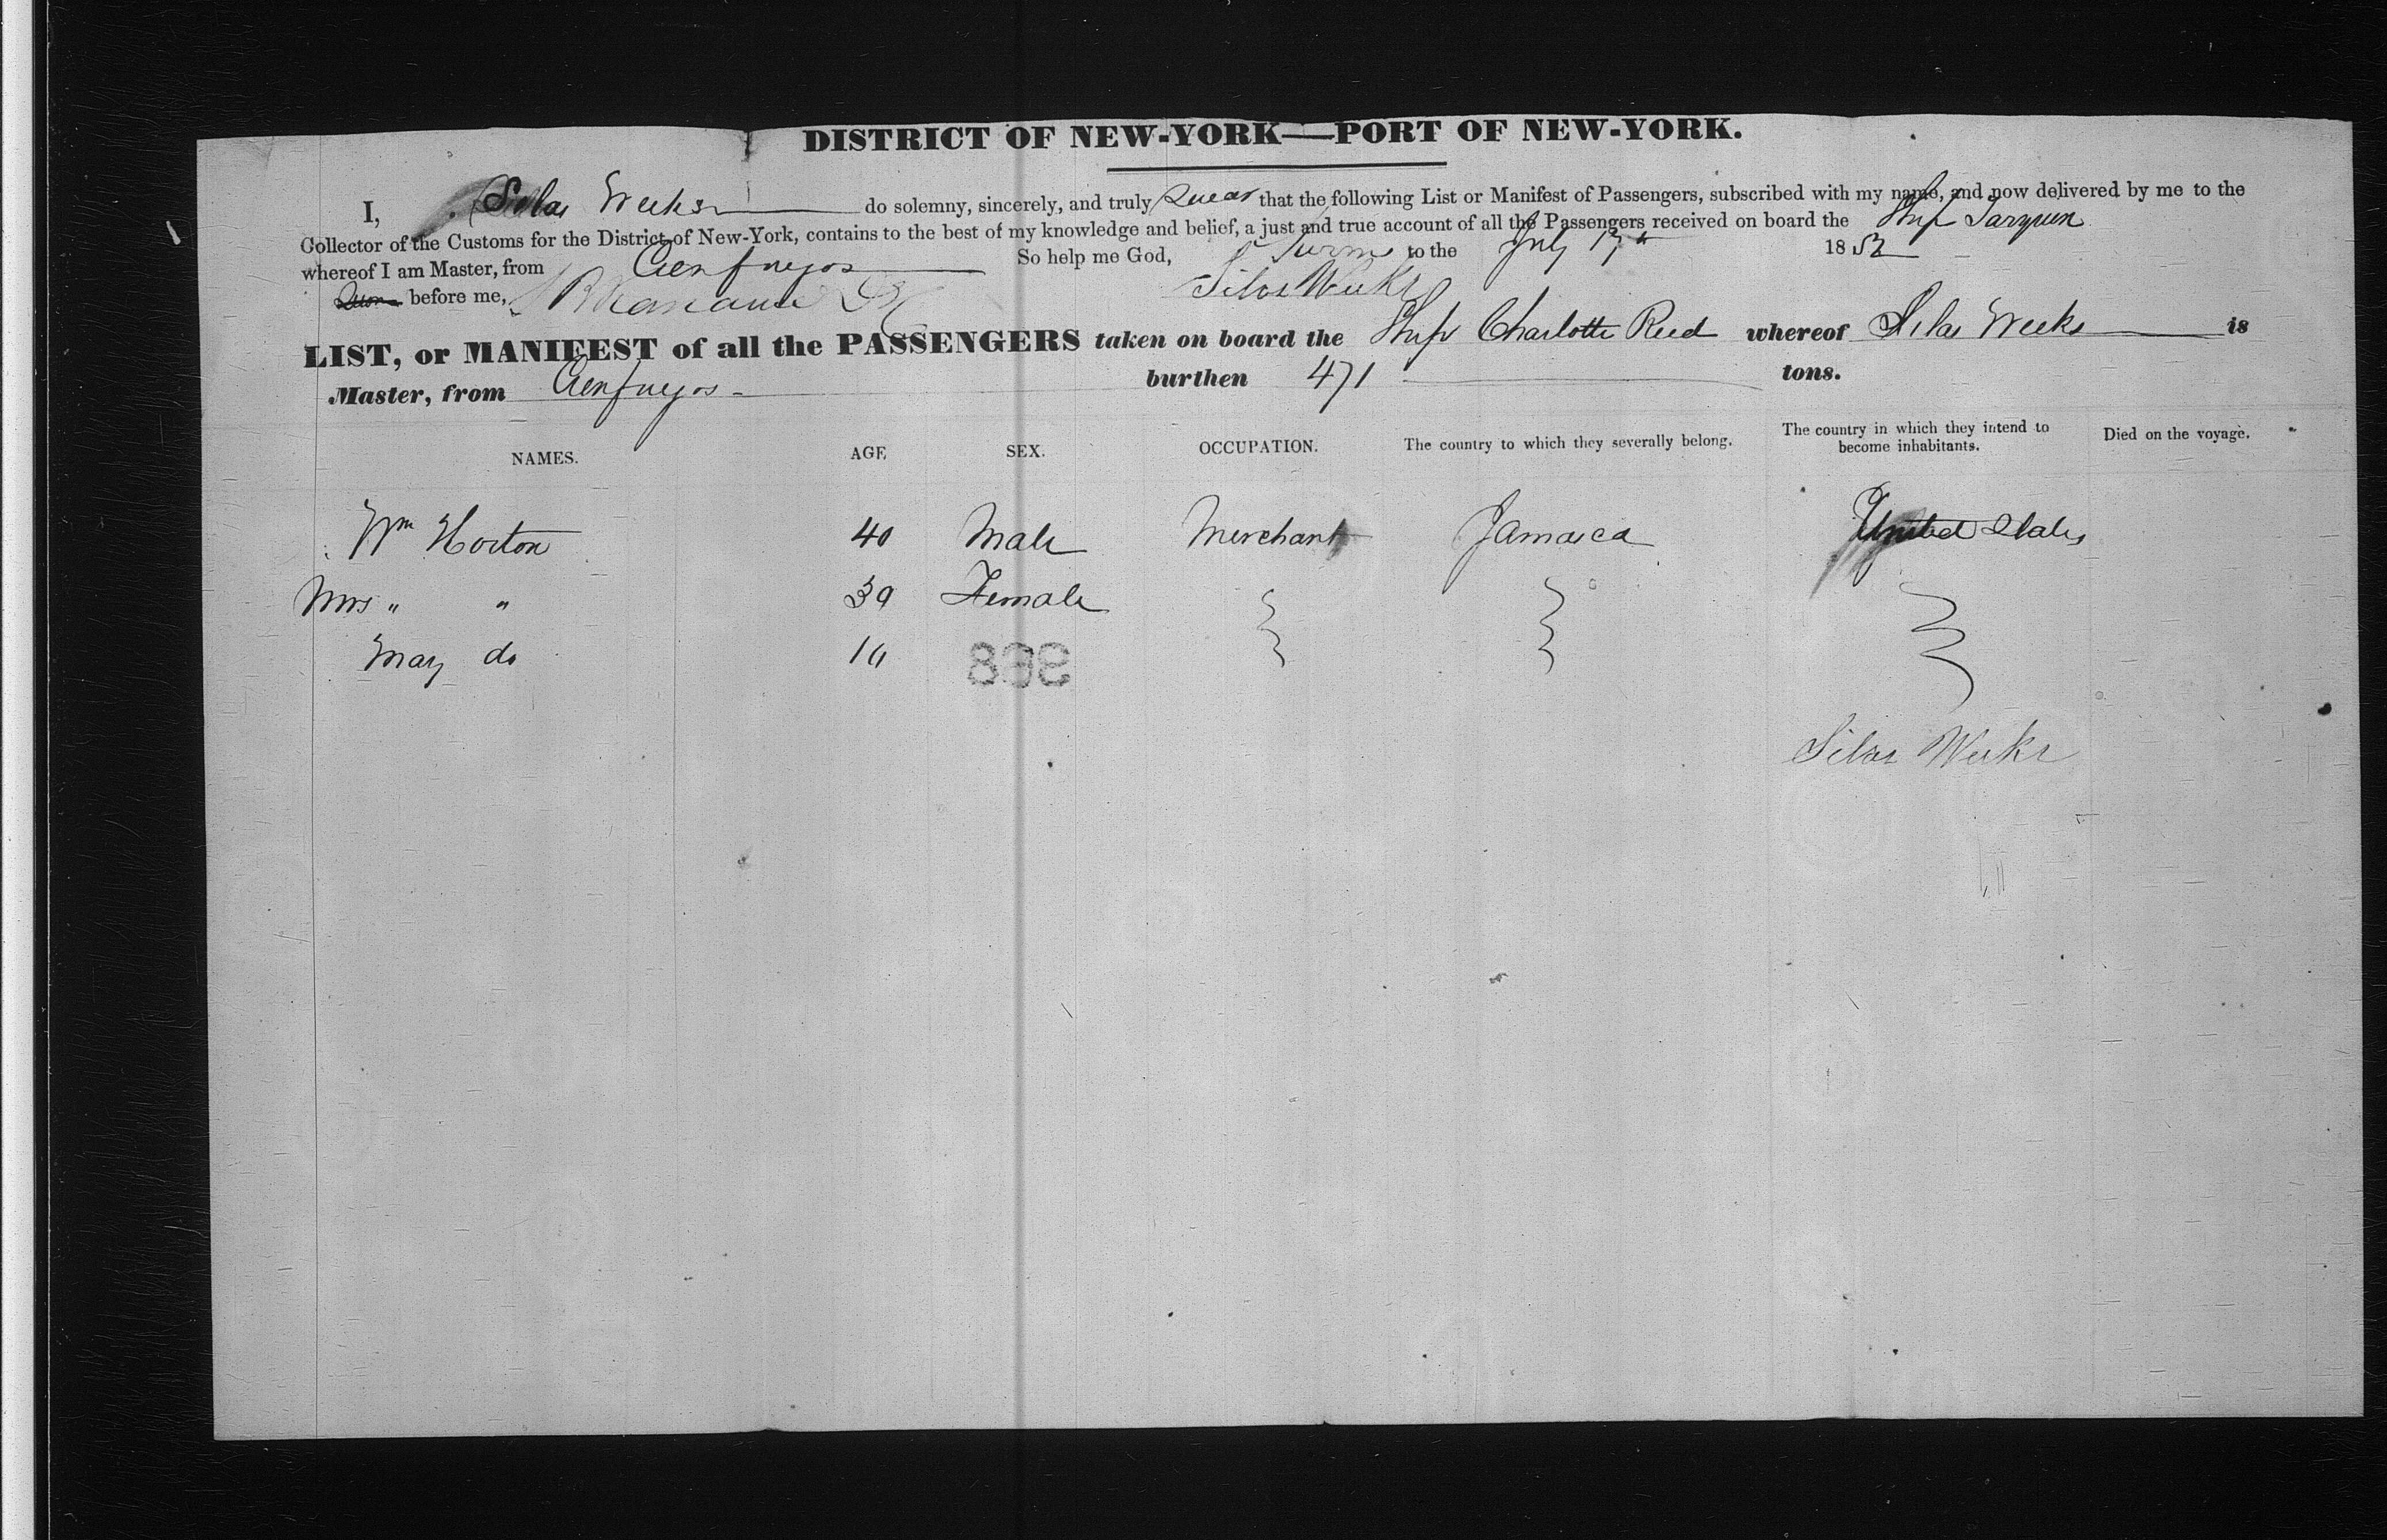 DISTRICT OF NEW-YORK—PORT OF NEW-YORK.
I, Silas Weeks do solemny, sincerely, and truly Swear that the following List or Manifest of Passengers, subscribed with my name, and now delivered by me to the
Collector of the Customs for the District of New-York, contains to the best of my knowledge and belief, a just and true account of all the Passengers received on board the Ship Tarquin
whereof I am Master, from Cienfuegos So help me God, Sworn to the July 1853
before me, Silas Weeks
LIST, or MANIFEST of all the PASSENGERS taken on board the Ship Charlotte Reed whereof Silas Weeks is
Master, from Cienfuegos burthen 471 tons.
NAMES. AGE SEX. OCCUPATION. The country to which they severally belong. The country in which they intend to become inhabitants. Died on the voyage.
Wm Horton 40 Male Merchant Jamaica United States
Mrs " " 39 Female
May do
Silas Weeks